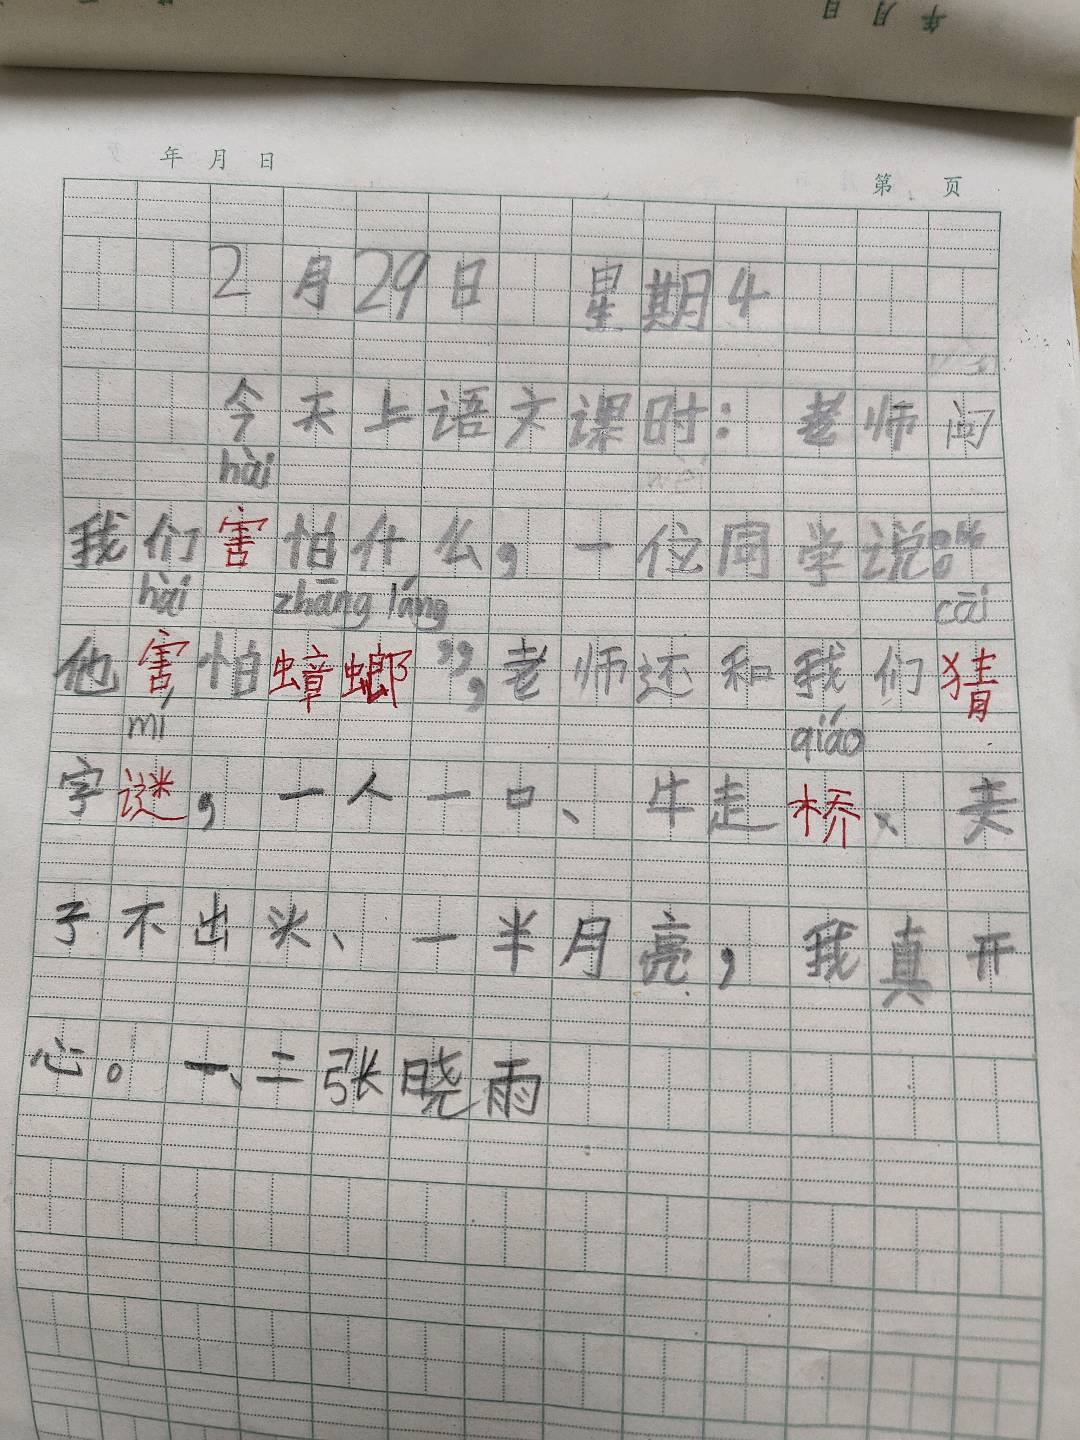 年 月 日
年 月 日
第 页
2月29日 星期4
今天上语文课时：老师问
hài
我们害怕什么，一位同学说：“
hài zhāng láng cāi
他害怕蟑螂”，老师还和我们猜
mí qiáo
字谜，一人一口、牛走桥、夫
子不出头、一半月亮，我真开
心。一、二张晓雨